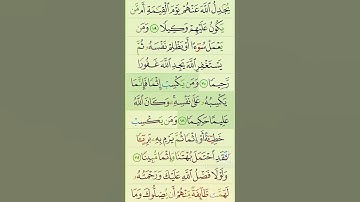 يُجَٰدِلُ ٱللَّهَ عَنْهُمْ يَوْمَ ٱلْقِيَٰمَةِ أَم مَّن
يَكُونُ عَلَيْهِمْ وَكِيلًا ١٠٩ وَمَن
يَعْمَلْ سُوٓءًا أَوْ يَظْلِمْ نَفْسَهُۥ ثُمَّ
يَسْتَغْفِرِ ٱللَّهَ يَجِدِ ٱللَّهَ غَفُورًا
رَّحِيمًا ١١٠ وَمَن يَكْسِبْ إِثْمًا فَإِنَّمَا
يَكْسِبُهُۥ عَلَىٰ نَفْسِهِۦ ۚ وَكَانَ ٱللَّهُ
عَلِيمًا حَكِيمًا ١١١ وَمَن يَكْسِبْ
خَطِيٓـَٔةً أَوْ إِثْمًا ثُمَّ يَرْمِ بِهِۦ بَرِيٓـًٔا
فَقَدِ ٱحْتَمَلَ بُهْتَٰنًا وَإِثْمًا مُّبِينًا ١١٢
وَلَوْلَا فَضْلُ ٱللَّهِ عَلَيْكَ وَرَحْمَتُهُۥ
لَهَمَّت طَّآئِفَةٌ مِّنْهُمْ أَن يُضِلُّوكَ وَمَا